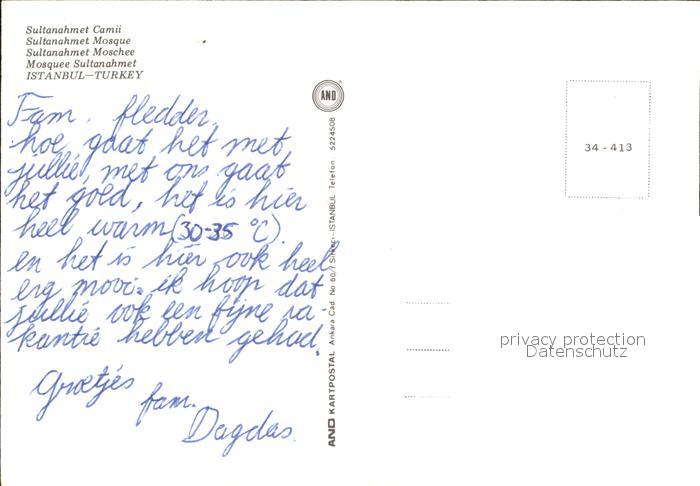 Sultanahmet Camii
Sultanahmet Mosque
Sultanahmet Moschee
Mosquee Sultanahmet
ISTANBUL—TURKEY
Fam. fledder,
hoe gaat het met
jullié, met ons gaat
het goéd, het is hier
heel warm (30-35 °C)
en het is hiér ook heel
erg mooi. ik hoop dat
jullié ook een fijne va-
kantié hebben gehad.
Groetjés
fam.
Dagdas.
AND
AND KARTPOSTAL Ankara Cad No 60/1 Sirkeci-İSTANBUL Telefon 5224508
34 - 413
privacy protection
Datenschutz